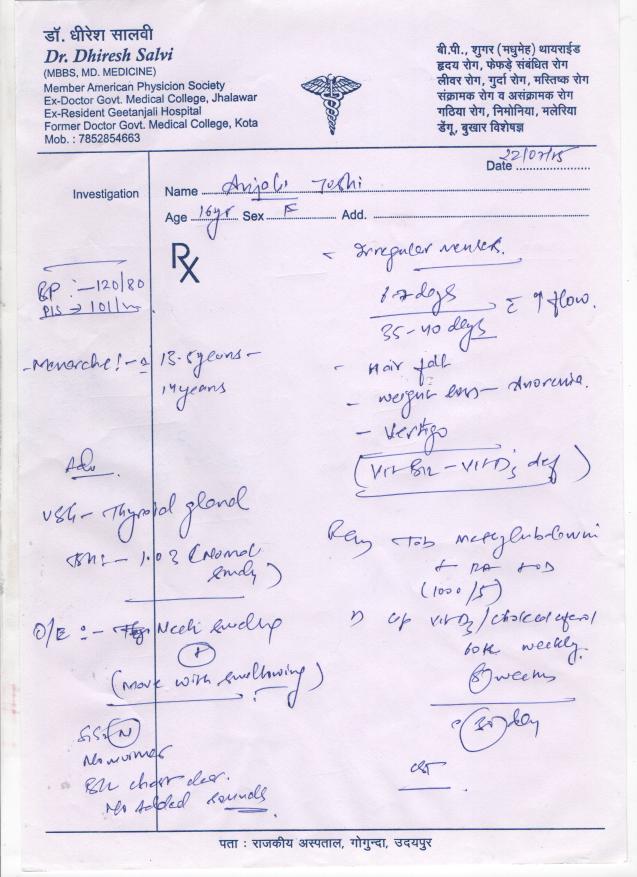 डॉ. धीरेश सालवी
Dr. Dhiresh Salvi
(MBBS, MD. MEDICINE)
Member American Physicion Society
Ex-Doctor Govt. Medical College, Jhalawar
Ex-Resident Geetanjali Hospital
Former Doctor Govt. Medical College, Kota
Mob. : 7852854663
बी.पी., शुगर (मधुमेह) थायराईड
हृदय रोग, फेफड़े संबंधित रोग
लीवर रोग, गुर्दा रोग, मस्तिष्क रोग
संक्रामक रोग व असंक्रामक रोग
गठिया रोग, निमोनिया, मलेरिया
डेंगू, बुखार विशेषज्ञ
Date
Investigation
Name Anjali Joshi
Age 16yr Sex F Add.
Rx
BP :- 120/80
101/m
- Menarche :- 13.5 years -
14 years
Adv
USG - Thyroid gland
1.03 (Normal
study)
O/E :- Neck swelling
+
(Move with swallowing)
S1S2 N
B/L chest clear.
No added sounds
- Irregular menses.
6-7 days
35-40 days
c ↑ flow.
- Hair fall
- weight loss - Anorexia.
- Vertigo
(Vit B12 - Vit D3 def)
Tab Methylcobalamin
(1000/5)
Vit D3 / Cholecalciferol
60k weekly
8 weeks
30 day
पता : राजकीय अस्पताल, गोगुन्दा, उदयपुर